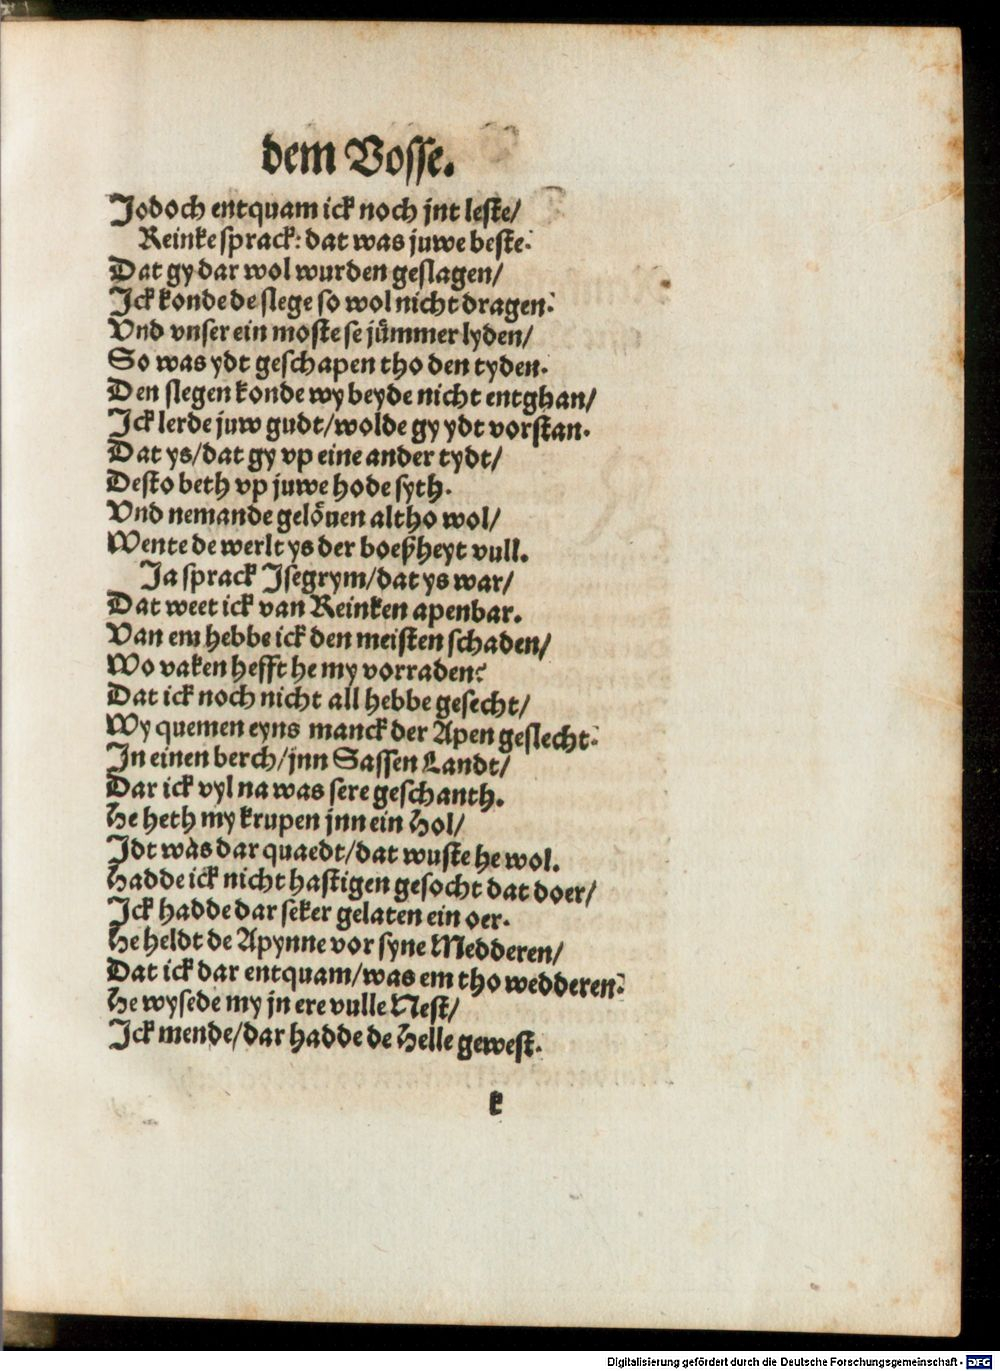 dem Vosse.
Jodoch entquam ick noch jnt leste/
Reinke sprack: dat was juwe beste.
Dat gy dar wol wurden geslagen/
Ick konde de slege so wol nicht dragen.
Vnd vnser ein moste se jümmer lyden/
So was ydt geschapen tho den tyden.
Den slegen konde wy beyde nicht entghan/
Ick lerde juw gudt/wolde gy ydt vorstan.
Dat ys/dat gy vp eine ander tydt/
Desto beth vp juwe hode syth.
Vnd nemande gelöuen altho wol/
Wente de werlt ys der boeßheyt vull.
Ja sprack Isegrym/dat ys war/
Dat weet ick van Reinken apenbar.
Van em hebbe ick den meisten schaden/
Wo vaken hefft he my vorraden?
Dat ick noch nicht all hebbe gesecht/
Wy quemen eyns manck der Apen geslecht.
In einen berch/jnn Sassen Landt/
Dar ick vyl na was sere geschanth.
He heth my krupen jnn ein Hol/
Idt was dar quaedt/dat wuste he wol.
Hadde ick nicht hastigen gesocht dat doer/
Ick hadde dar seker gelaten ein oer.
He heldt de Apynne vor syne Medderen/
Dat ick dar entquam/was em tho wedderen.
He wysede my jn ere vulle Nest/
Ick mende/dar hadde de Helle gewest.
k
Digitalisierung gefördert durch die Deutsche Forschungsgemeinschaft - DFG